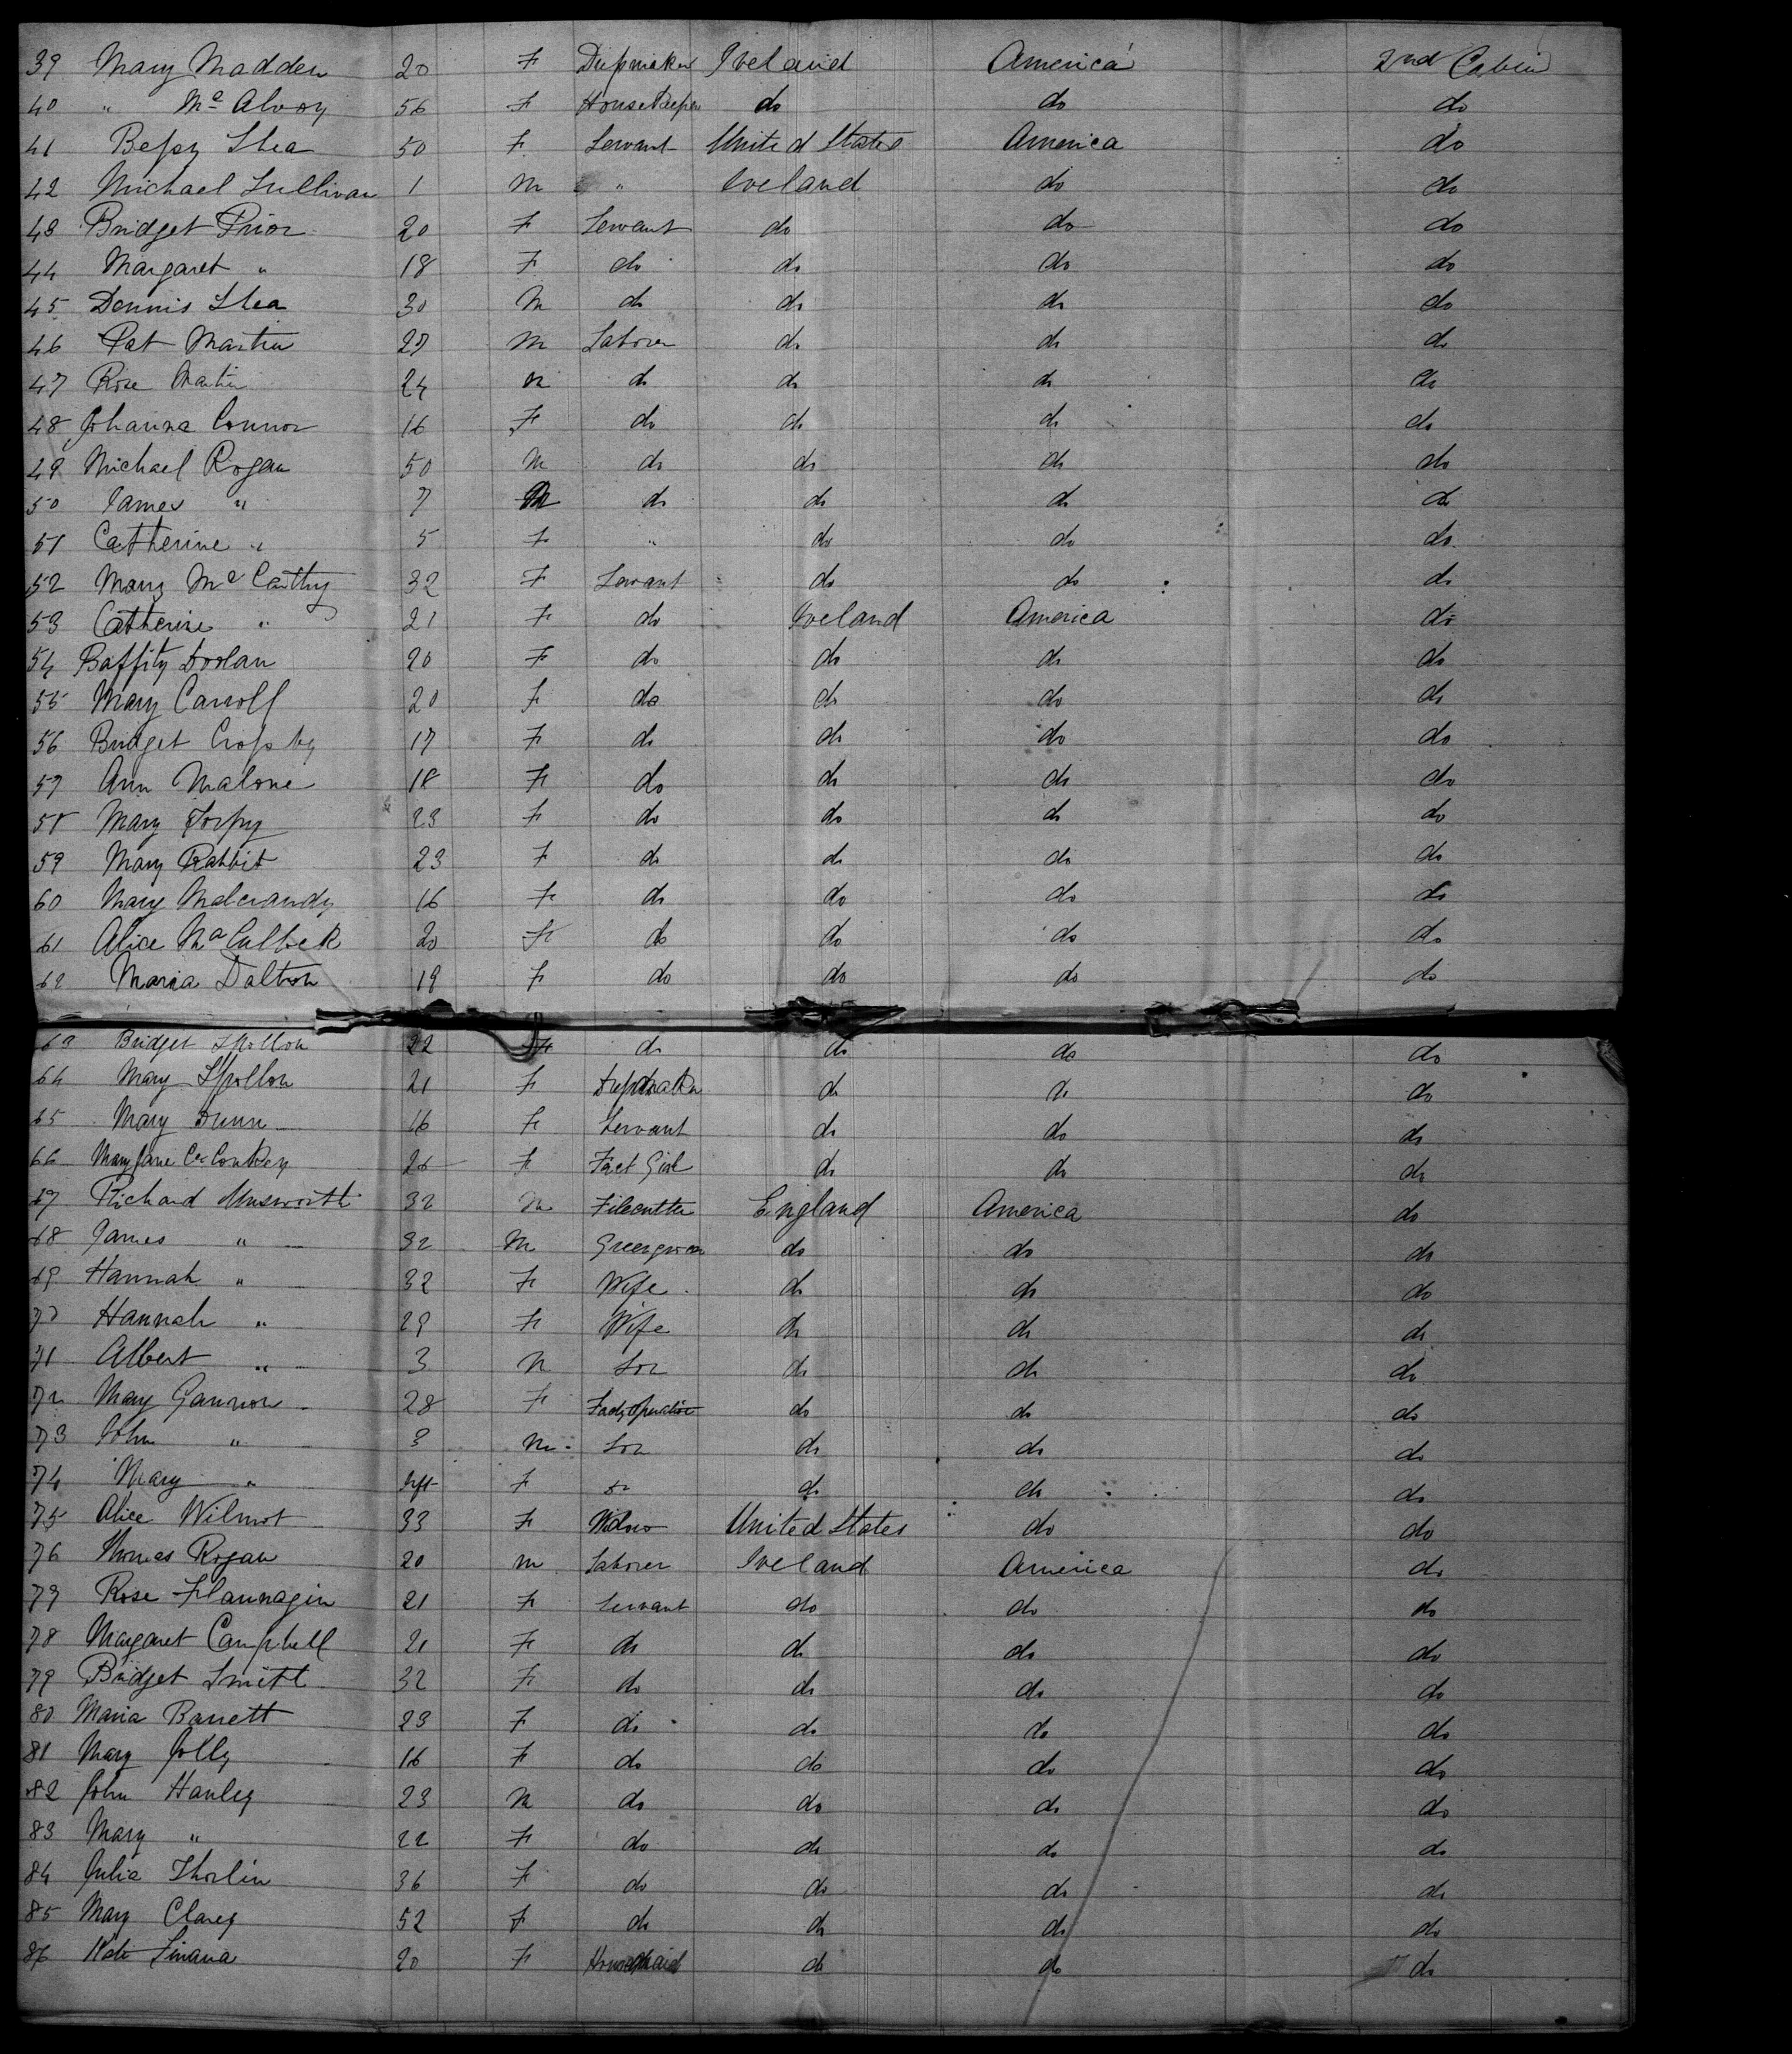 39 Mary Madden 20 F Dressmaker Ireland America 2nd Cabin
40 " Mc Alvoy 56 F HouseKeeper do do do
41 Bessy Shea 50 F Servant United States America do
42 Michael Sullivan 1 M " Ireland do do
43 Bridget Prior 20 F Servant do do do
44 Margaret " 18 F do do do do
45 Dennis Shea 30 M do do do do
46 Pat Martin 27 M Laborer do do do
47 Rose Martin 24 M do do do do
48 Johanna Connor 16 F do do do do
49 Michael Rogan 50 M do do do do
50 James " 7 M do do do do
51 Catherine " 5 F " do do do
52 Mary Mc Carthy 32 F Servant do do do
53 Catherine " 21 F do Ireland America do
54 Doolan 20 F do do do do
55 Mary Carroll 20 F do do do do
56 Bridget Crossby 17 F do do do do
57 Ann Malone 18 F do do do do
58 Mary Torpy 23 F do do do do
59 Mary Rabbit 23 F do do do do
60 Mary 16 F do do do do
61 Alice 20 F do do do do
62 Maria Dalton 19 F do do do do
63 Bridget Spollon 22 F do do do do
64 Mary Spollon 21 F Dressmaker do do do
65 Mary Dunn 16 F Servant do do do
66 Mary Jane 26 F Fact Girl do do do
67 Richard Unsworth 32 M Filecutter England America do
68 James " 32 M Greengrocer do do do
69 Hannah " 32 F Wife do do do
70 Hannah " 29 F Wife do do do
71 Albert " 3 M Son do do do
72 Mary Gannon 28 F do do do
73 John " 3 M Son do do do
74 Mary " Inft F do do do
75 Alice Wilmot 33 F Widow United States do do
76 Thomas Rogan 20 M Laborer Ireland America do
77 Rose Flannagin 21 F Servant do do do
78 Margaret Campbell 21 F do do do do
79 Bridget Smith 32 F do do do do
80 Maria Barrett 23 F do do do do
81 Mary Jolly 16 F do do do do
82 John Hanley 23 M do do do do
83 Mary " 22 F do do do do
84 Julia 36 F do do do do
85 Mary Clarey 52 F do do do do
86 Kate 20 F Housemaid do do do